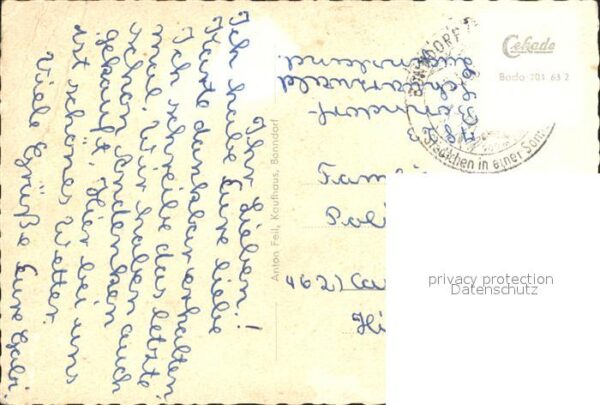 Ihr Lieben!
Ich habe Eure liebe
Karte dankbar erhalten.
Ich schreibe das letzte
mal. Wir haben
schon Andenken auch
gekauft. Hier bei uns
ist schönes Wetter
Viele Grüße Eure Gabi
Anton Feil, Kaufhaus, Bonndorf
Cekade
Bado 201 63 2
BONNDORF
Städtchen in einer
Schwarzwald
Fam
Poli
4621 Ca
Hi
privacy protection
Datenschutz